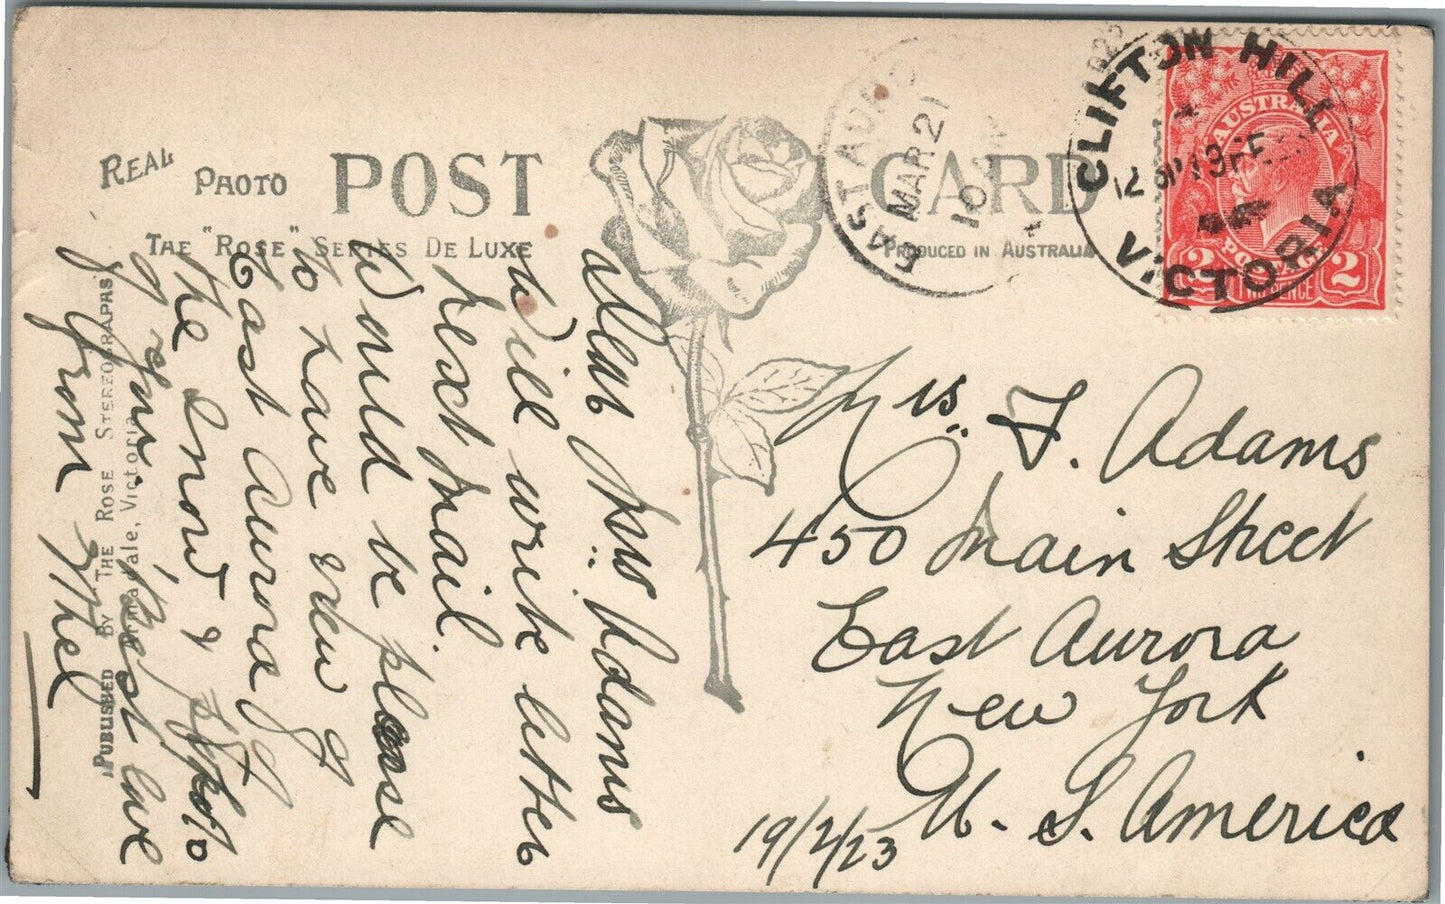 REAL PHOTO POST CARD
THE "ROSE" SERIES DE LUXE
PRODUCED IN AUSTRALIA
PUBLISHED BY THE ROSE STEREOGRAPHS
Armadale, Victoria
EAST AURO
MAR 21
10
1923
CLIFTON HILL
12 19 FE
VICTORIA
AUSTRALIA
2 POSTAGE 2
TWO PENCE
Mrs. F. Adams
450 Main Street
East Aurora
New York
U. S. America
19/2/23
Dear Mrs Adams
Will write letter
next mail.
Would be please
to have view of
East Aurora
the snow &
Best love
from